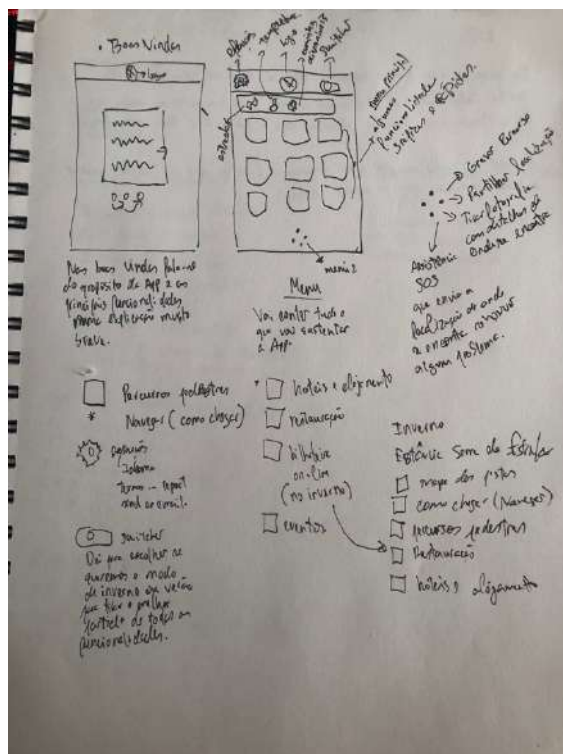 Boas Vindas
logo
opções
temperatura
logo
switcher
menu principal
algumas
funcionalidades
menu 2
Gravar Percurso
Partilhar localização
Tirar fotografia
com detalhes de
onde se encontra
Assistência
SOS
que envia a
localização de onde
se encontra
algum problema.
Nas boas vindas fala-se
do propósito da App e as
principais funcionalidades
numa explicação muito
breve.
Menu
Vai conter tudo o
que vai sustentar
a App.
Percursos pedestres
* Navegar (como chegar)
opções
Idioma
Termos
send an email.
switcher
Dá para escolher se
queremos o modo
de inverno ou verão
para tirar o melhor
partido de todas as
funcionalidades.
* hoteis e alojamento
restauração
bilheteira
online
(no inverno)
eventos
Inverno
Estância Serra da Estrela
mapa das pistas
como chegar (Navegar)
percursos pedestres
Restauração
hoteis e alojamento